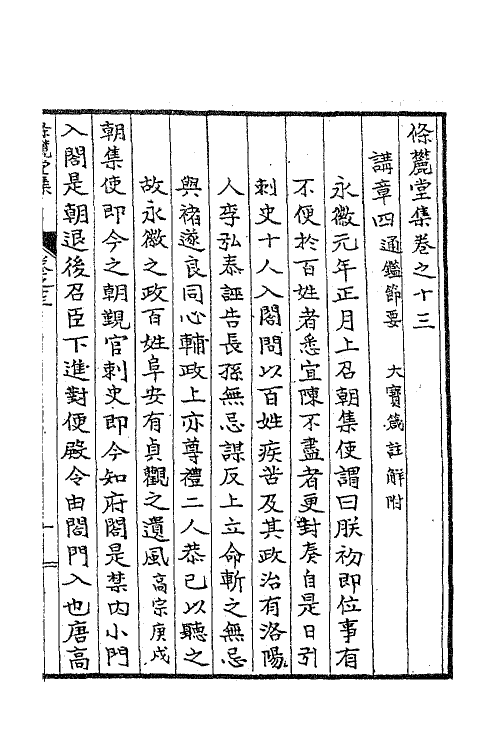 條麓堂集卷之十三
講章四通鑑節要 大寶箴註解附
永徽元年正月上召朝集使謂曰朕初即位事有
不便於百姓者悉宜陳不盡者更對奏自是日引
刺史十人入閤問以百姓疾苦及其政治有洛陽
人李弘泰誣告長孫無忌謀反上立命斬之無忌
與褚遂良同心輔政上亦尊禮二人恭己以聽之
故永徽之政百姓阜安有貞觀之遺風高宗庚戌
朝集使即今之朝覲官刺史即今知府閤是禁內小門
入閤是朝退後召臣下進對便殿令由閤門入也唐高
條麓堂集
卷之十三
一